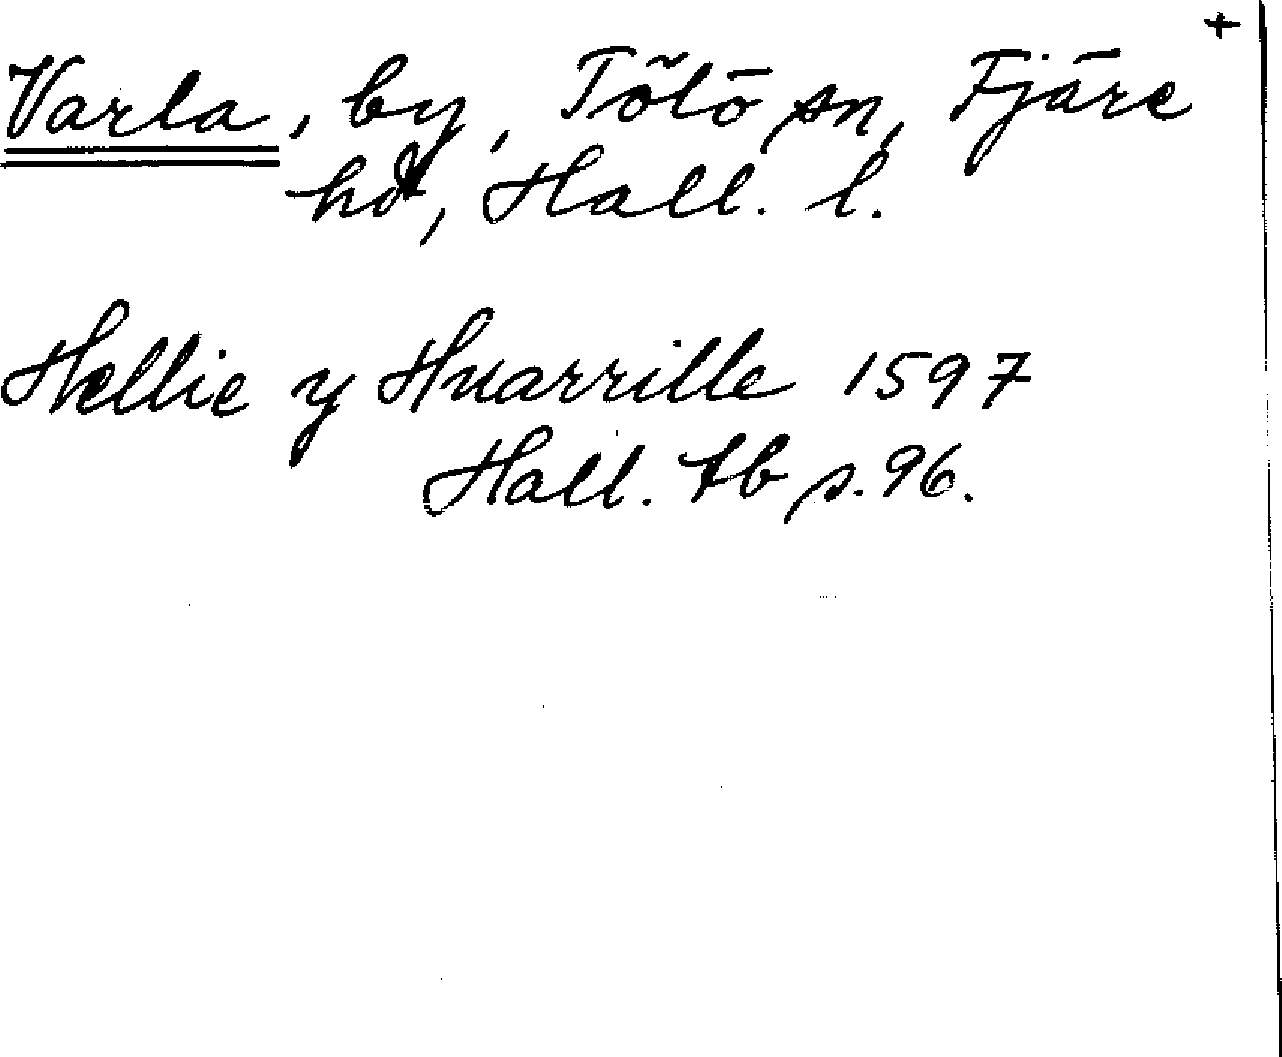 +
Varla, by, Tölö sn, Fjäre
hd, Hall. l.
Hellie y Huarrille 1597
Hall. tb s. 96.